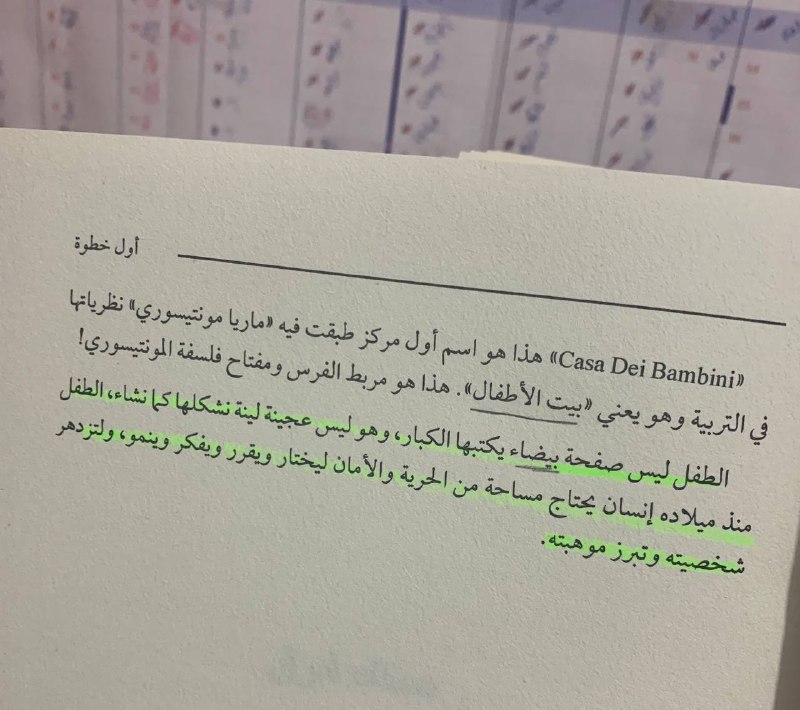 أول خطوة
«Casa Dei Bambini» هذا هو اسم أول مركز طبقت فيه «ماريا مونتيسوري» نظرياتها
في التربية وهو يعني «بيت الأطفال». هذا هو مربط الفرس ومفتاح فلسفة المونتيسوري!
الطفل ليس صفحة بيضاء يكتبها الكبار، وهو ليس عجينة لينة نشكلها كما نشاء، الطفل
منذ ميلاده إنسان يحتاج مساحة من الحرية والأمان ليختار ويقرر ويفكر وينمو، ولتزدهر
شخصيته وتبرز موهبته.